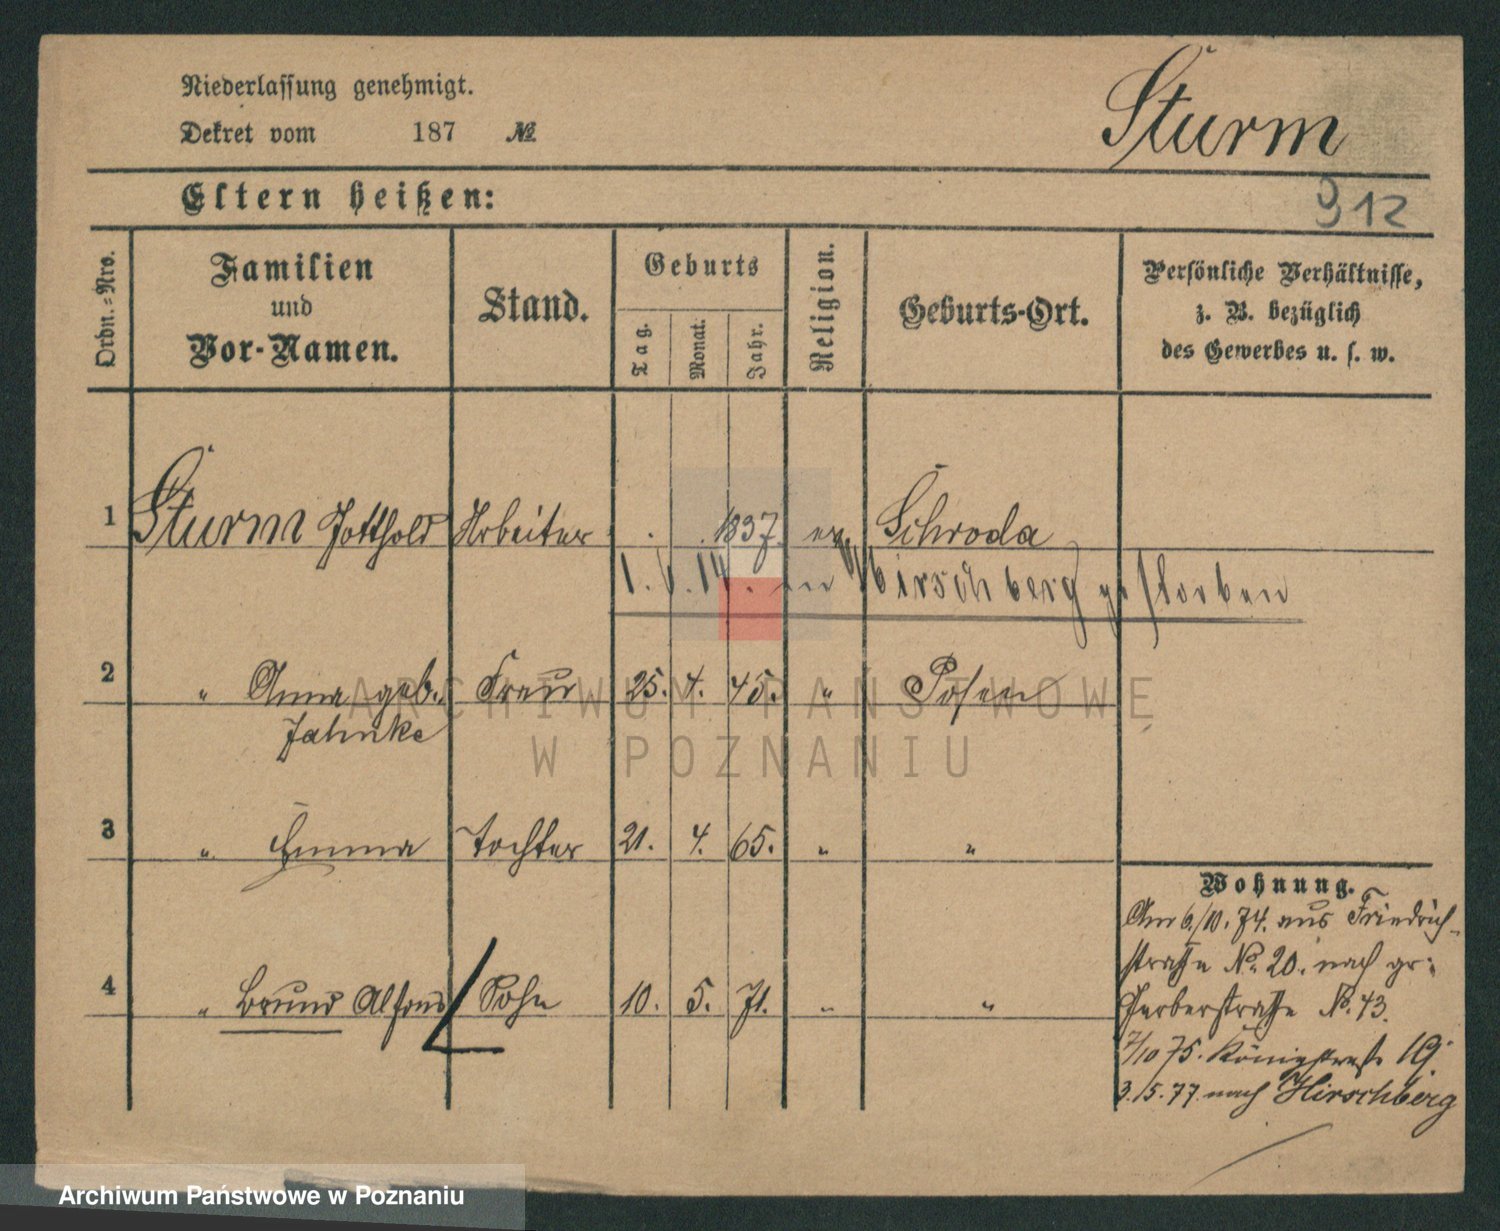 Niederlassung genehmigt.
Dekret vom 187 №
Sturm
Eltern heißen:
912
Ordn.=Nro.
Familien
und
Vor-Namen.
Stand.
Geburts
Tag.
Monat.
Jahr.
Religion.
Geburts-Ort.
Persönliche Verhältnisse,
z. B. bezüglich
des Gewerbes u. s. w.
1 Sturm Gotthold Arbeiter . . 1837. ev Schroda
1. 14. in Hirschberg gestorben
2 " Anna geb. Frau 25. 4. 45. " Posen
Jahnke
3 " Emma Tochter 21. 4. 65. " "
4 " Bruno Alfons Sohn 10. 5. 71. " "
Wohnung.
Am 6/10. 74. aus Friedrich-
straße No. 20. nach gr.
Gerberstraße No. 43.
7/10 75. Königstraße 19.
3./5. 77. nach Hirschberg
ARCHIWUM PAŃSTWOWE
W POZNANIU
Archiwum Państwowe w Poznaniu